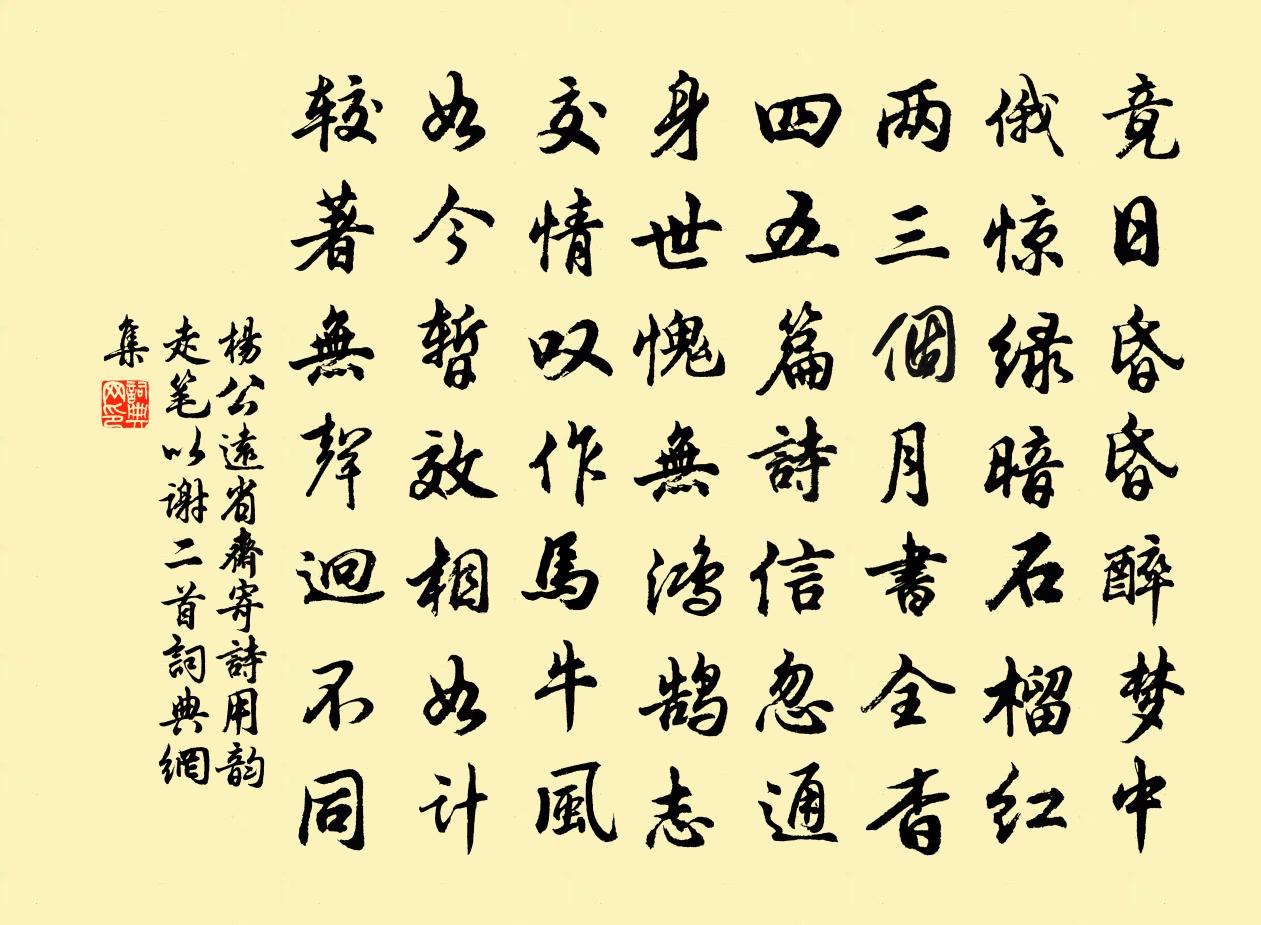 竟日昏昏醉梦中
俄惊绿暗石榴红
两三個月書全杳
四五篇詩信忽通
身世愧無鴻鹄志
交情叹作馬牛風
如今暫效相如计
较著無聲迥不同
楊公遠省齋寄詩用韵
走笔以谢二首詞典網
集
詞典网印